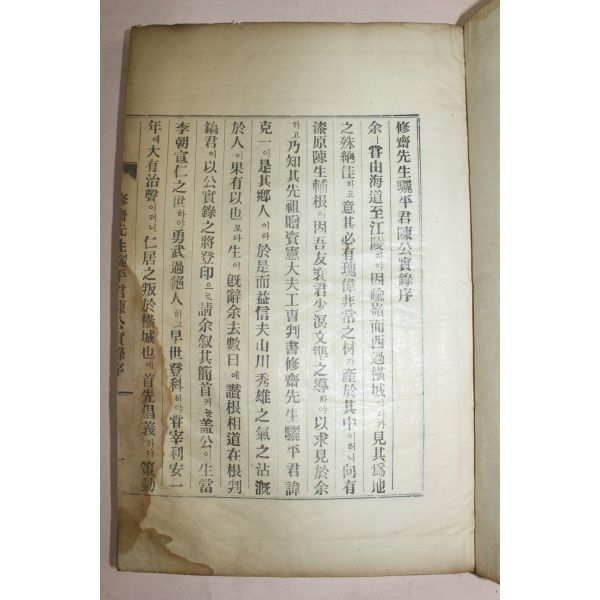 修齋先生驪平君陳公實錄序
余ㅣ嘗由海道至江陵하야因踰嶺而西過橫城하다가見其爲地
之殊絶佳하고意其必有瑰偉非常之材가產於其中이러니向有
漆原陳生輔根이因吾友裵君少溟文準之導하야以求見於余
하고乃知其先祖贈資憲大夫工曹判書修齋先生驪平君諱
克一이是其鄉人이라於是而益信夫山川秀雄之氣之沾漑
於人이果有以也로다生이旣辭余去數日에讚根相道在根判
鎬君이以公實錄之將登印으로請余叙其簡首커늘盖公이生當
李朝宣仁之世하야勇武過絶人하고早世登科하야嘗宰利安一
年에大有治聲이러니仁居之叛於橫城也에首先倡義하야策動
修齋先生驪平君陳公實錄序
一